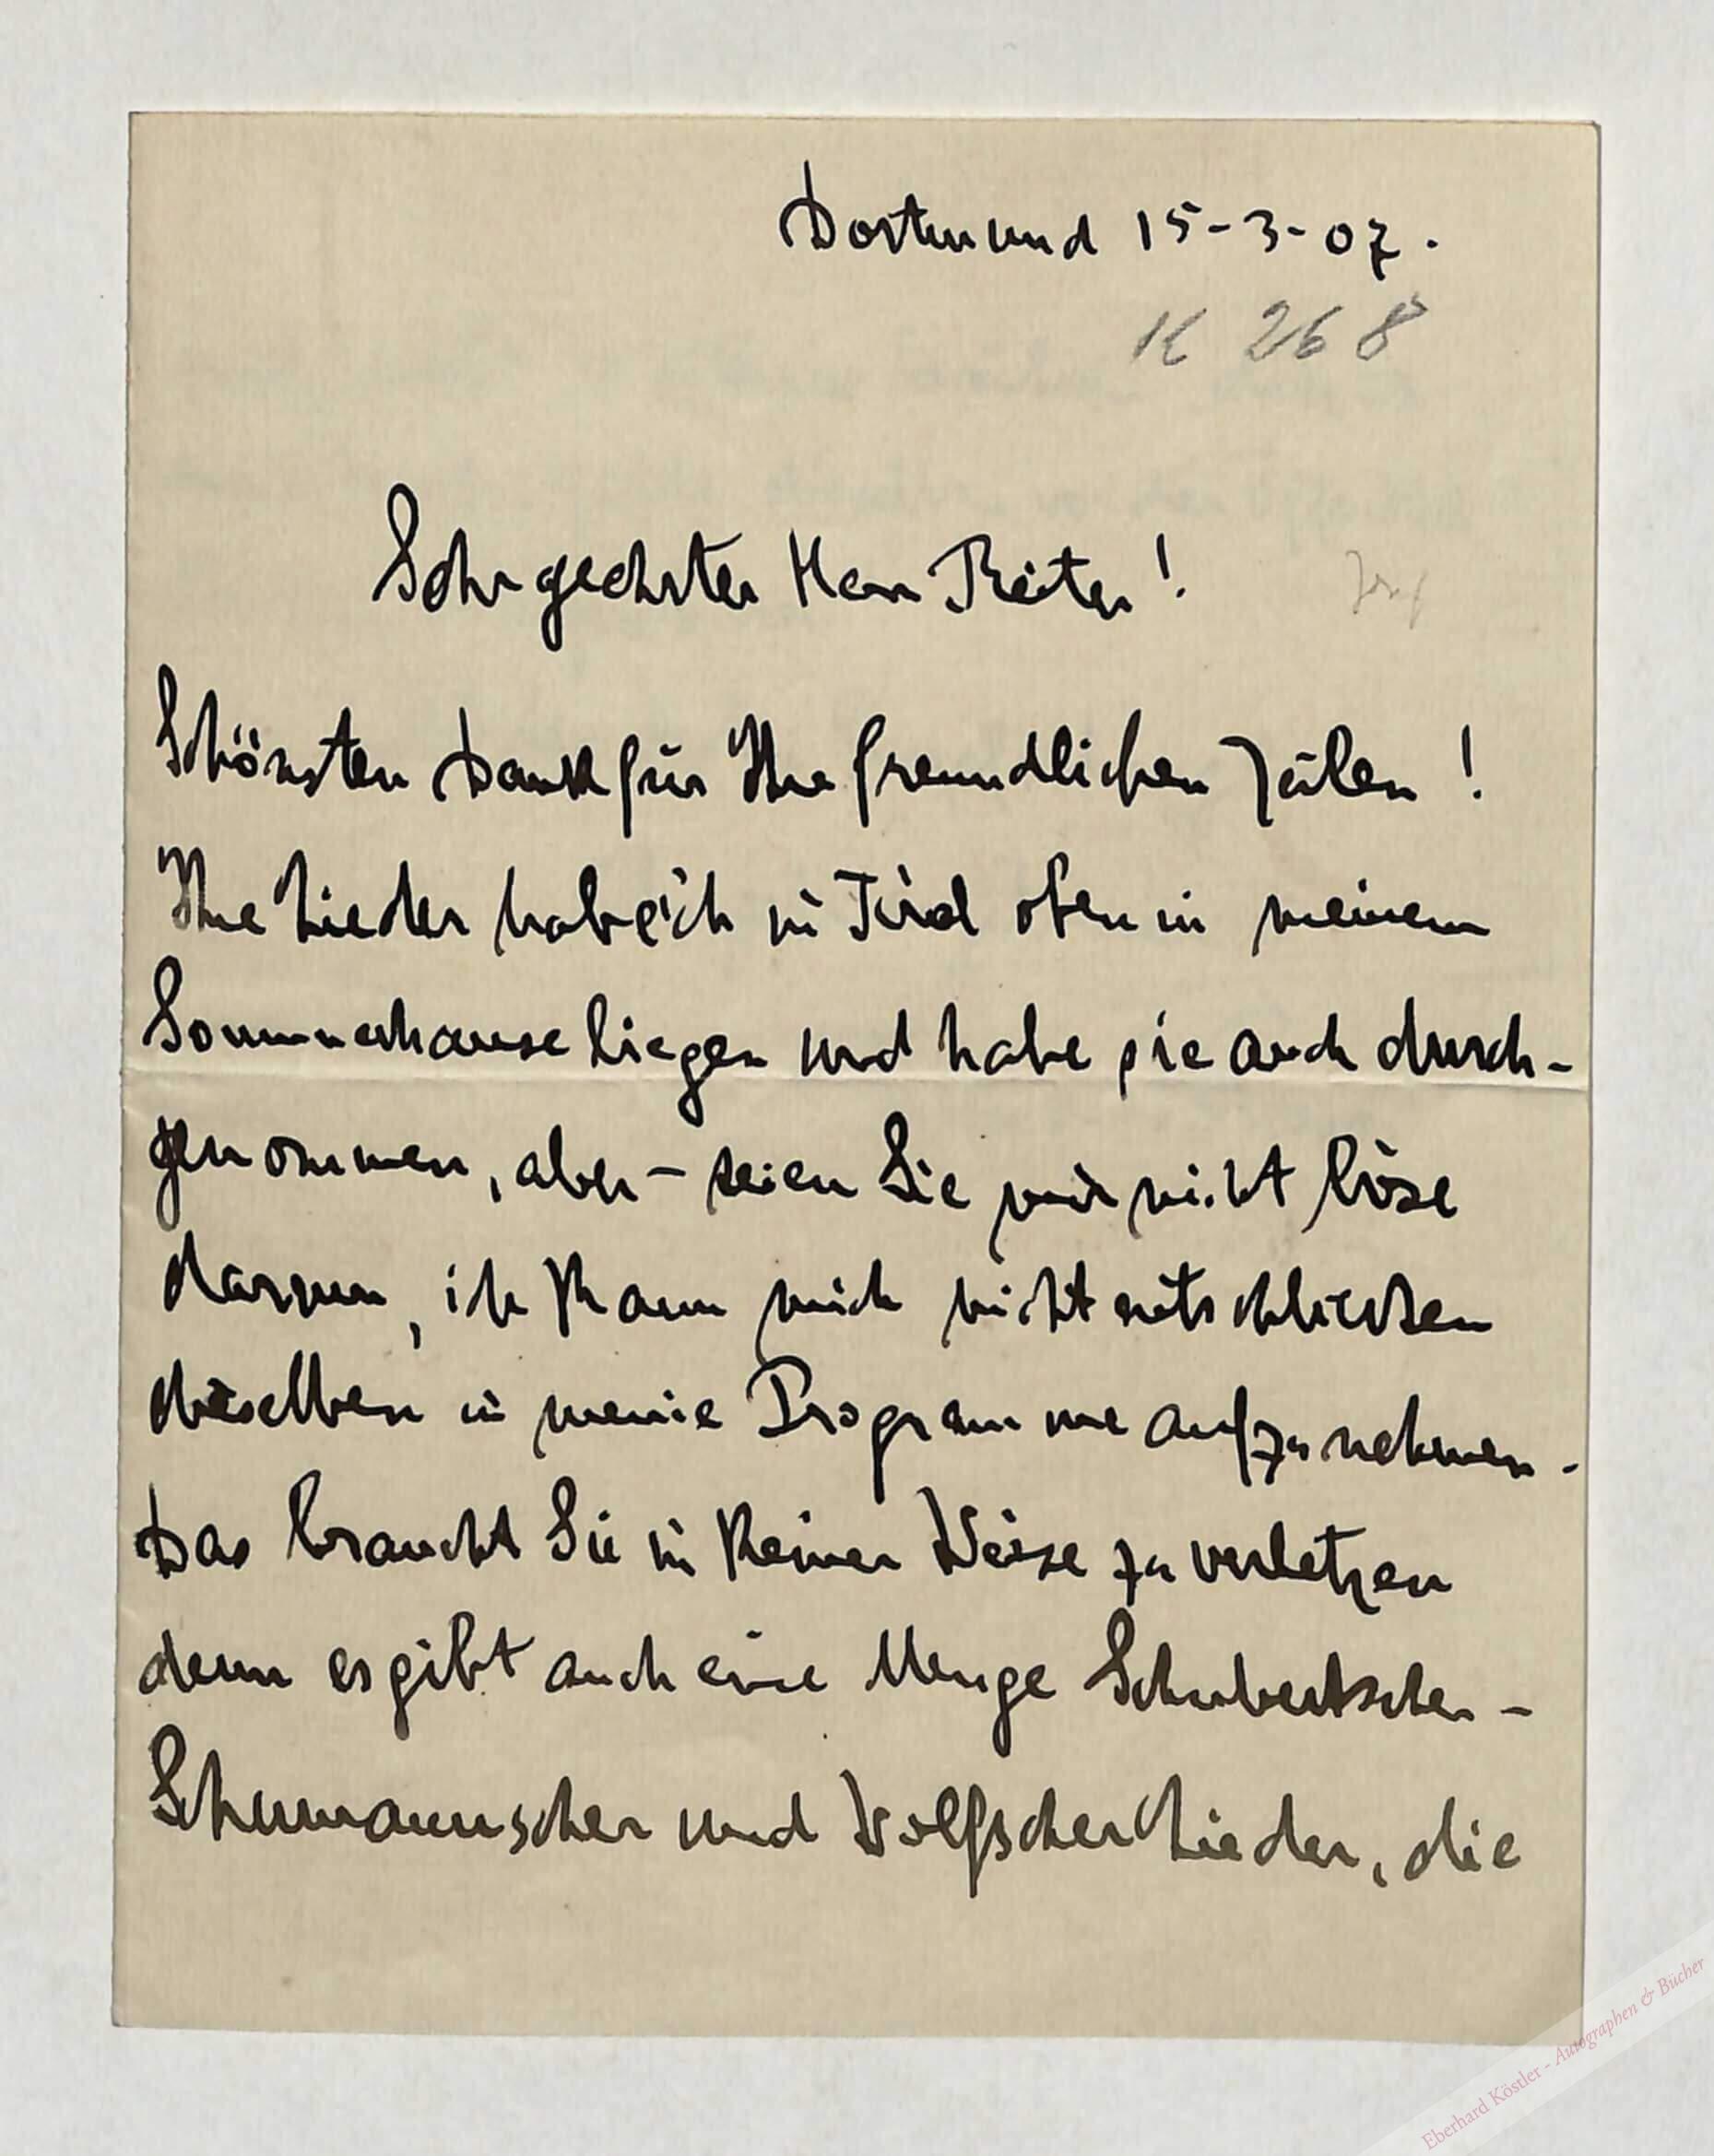 Dortmund 15-3-07.
K 268
Sehr geehrter Herr Reiter!
Josef
Schönsten Dank für Ihre freundlichen Zeilen!
Ihre Lieder habe ich in Tirol oben in meinem
Sommerhause liegen und habe sie auch durch-
genommen, aber - seien Sie mir nicht böse
darum, ich kann mich nicht entschliessen
dieselben in meine Programme aufzunehmen.
Das braucht Sie in keiner Weise zu verletzen
denn es gibt auch eine Menge Schubertscher -
Schumannscher und Wolfscher Lieder, die
Eberhard Köstler - Autographen & Bücher